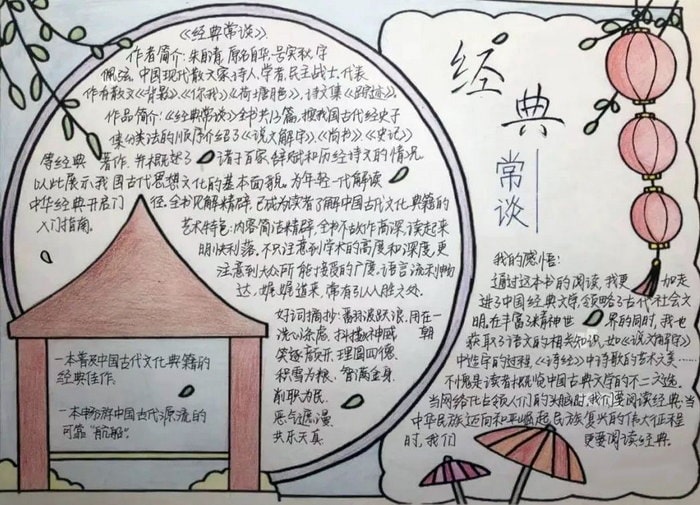 《经典常谈》
作者简介：朱自清，原名自华，号实秋，字
佩弦，中国现代散文家，诗人，学者，民主战士，代表
作有散文《背影》、《你我》、《荷塘月色》，诗文集《踪迹》。
作品简介：《经典常谈》全书共13篇，按我国古代经史子
集分类法的顺序介绍了《说文解字》、《尚书》、《史记》
等经典著作，并概述了诸子百家、辞赋和历经诗文的情况。
以此展示我国古代思想文化的基本面貌，为年轻一代解读
中华经典开启门径，全书见解精辟，已成为读者了解中国古代文化典籍的
入门指南。
艺术特色：内容简洁精辟，全书不故作高深，读起来
明快利落，不只注意到学术的高度和深度，更
注意到大众所能接受的广度，语言流利畅
达，娓娓道来，常有引人入胜之处。
好词摘抄：翻波跃浪 用在一朝
洗心涤虑 抖擞神威
笑逐颜开 理圆四德
积雪为粮 智满金身
削职为民
恶气遮漫
共乐天真
一本普及中国古代文化典籍的
经典佳作。
一本畅游中国古代源流的
可靠“航船”。
经典
常谈
我的感悟：
通过这本书的阅读，我更加走
进了中国经典文学，领略了古代社会文
明，在丰富了精神世界的同时，我也
获取了语文的相关知识，如《说文解字》
中造字的过程，《诗经》中诗歌的艺术之美……
不愧是读者概览中国古典文学的不二之选。
当网络化占领人们的头脑时，我们要阅读经典；当
中华民族迈向和平崛起民族复兴的伟大征程
时，我们更要阅读经典。